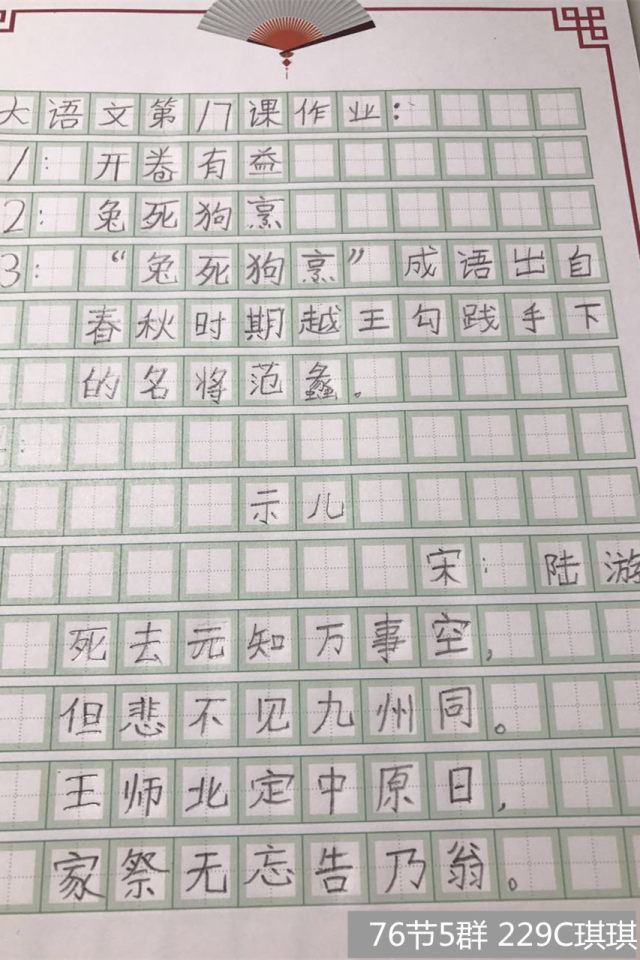 大语文第17课作业:
1: 开卷有益
2: 兔死狗烹
3: “兔死狗烹”成语出自
春秋时期越王勾践手下
的名将范蠡。
示儿
宋:陆游
死去元知万事空,
但悲不见九州同。
王师北定中原日,
家祭无忘告乃翁。
76节5群 229C琪琪